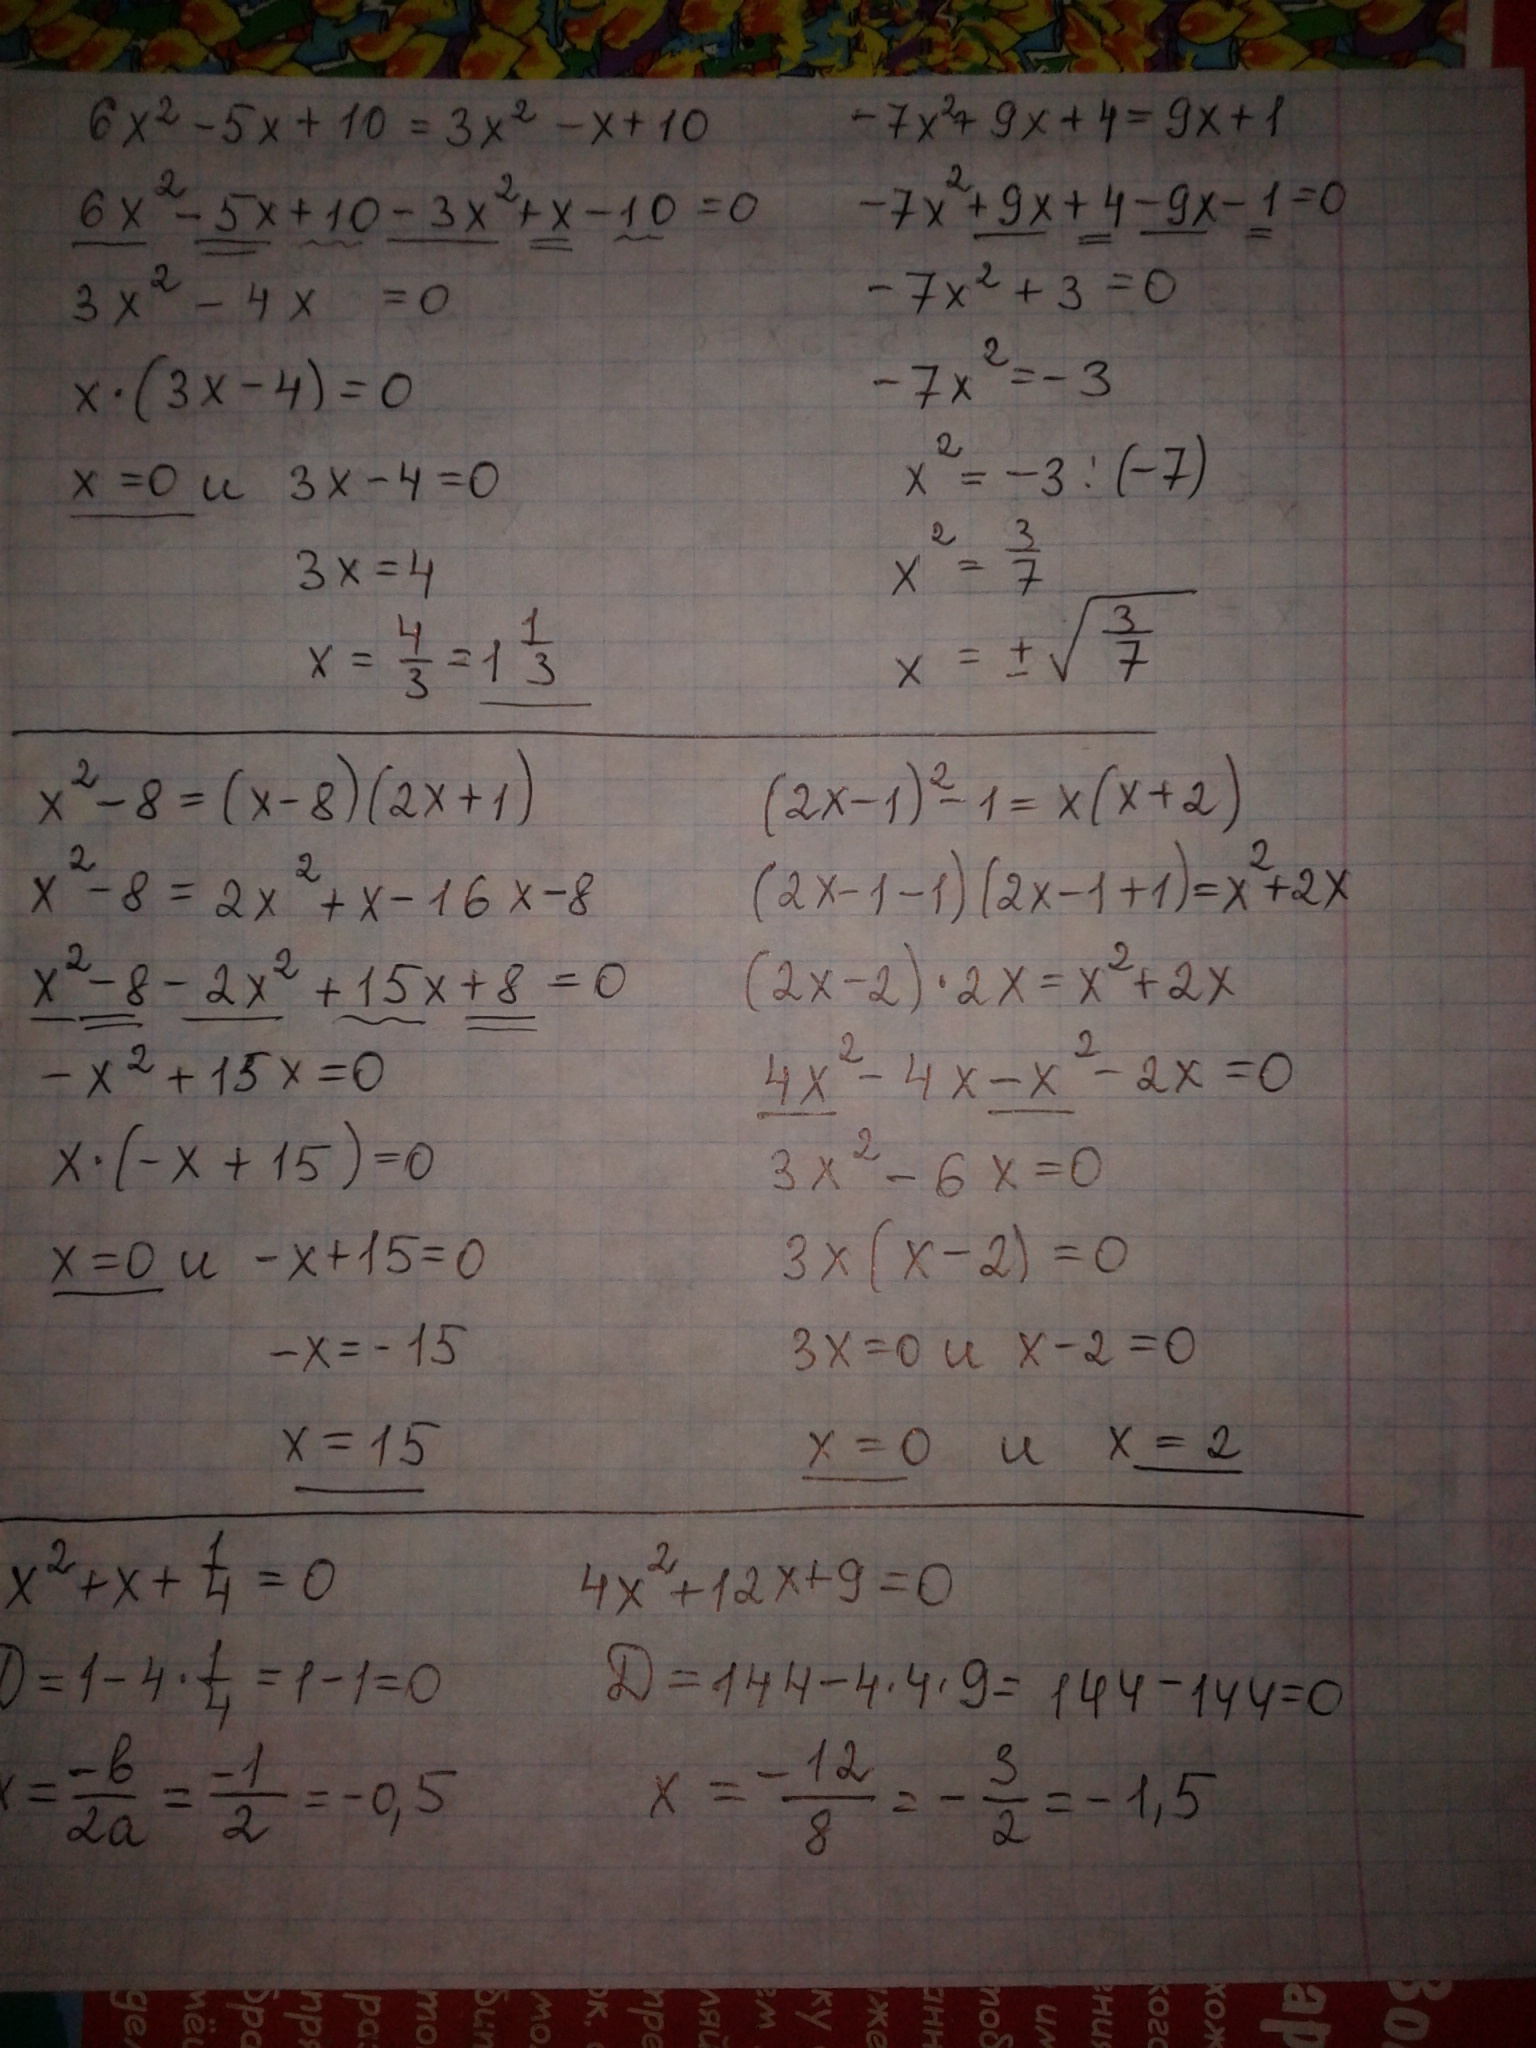 6x² - 5x + 10 = 3x² - x + 10
6x² - 5x + 10 - 3x² + x - 10 = 0
3x² - 4x = 0
x · (3x - 4) = 0
x = 0 и 3x - 4 = 0
3x = 4
x = 4/3 = 1 1/3
-7x² + 9x + 4 = 9x + 1
-7x² + 9x + 4 - 9x - 1 = 0
-7x² + 3 = 0
-7x² = -3
x² = -3 : (-7)
x² = 3/7
x = ± √(3/7)
x² - 8 = (x - 8)(2x + 1)
x² - 8 = 2x² + x - 16x - 8
x² - 8 - 2x² + 15x + 8 = 0
-x² + 15x = 0
x · (-x + 15) = 0
x = 0 и -x + 15 = 0
-x = -15
x = 15
(2x - 1)² - 1 = x(x + 2)
(2x - 1 - 1)(2x - 1 + 1) = x² + 2x
(2x - 2) · 2x = x² + 2x
4x² - 4x - x² - 2x = 0
3x² - 6x = 0
3x(x - 2) = 0
3x = 0 и x - 2 = 0
x = 0 и x = 2
x² + x + 1/4 = 0
D = 1 - 4 · 1/4 = 1 - 1 = 0
x = -b/2a = -1/2 = -0,5
4x² + 12x + 9 = 0
D = 144 - 4 · 4 · 9 = 144 - 144 = 0
x = -12/8 = -3/2 = -1,5